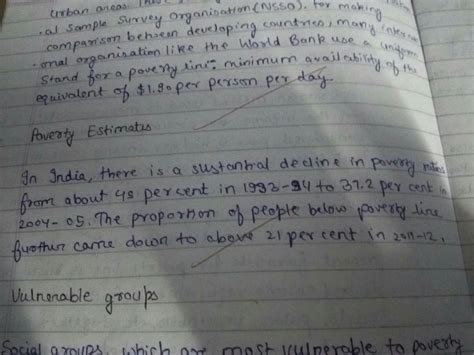 Urban areas.
al Sample Survey Organisation (NSSO). for making
comparison between developing countries, many inter nati
onal organisation like the World Bank use a uniform
stand for a poverty line: minimum availability of the
equivalent of $1.90 per person per day
Poverty Estimates
In India, there is a sustantial decline in poverty
from about 45 per cent in 1993-94 to 37.2 per cent
2004-05. The proportion of people below poverty line
further came down to above 21 per cent in 2011-12.
Vulnerable groups
Social groups, which are most vulnerable to poverty